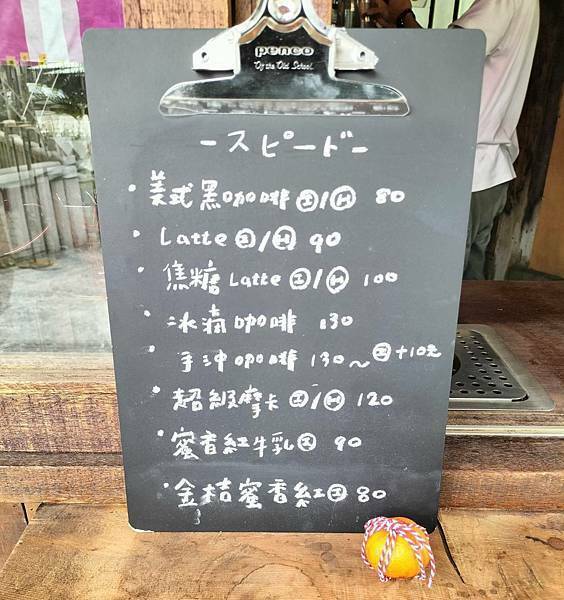 penco
"Of the Old School."
-スピード-
・美式黑咖啡 Ⓘ/Ⓗ 80
・Latte Ⓘ/Ⓗ 90
・焦糖 Latte Ⓘ/Ⓗ 100
・冰滴咖啡 130
・手沖咖啡 130~ Ⓘ+10元
・超級摩卡 Ⓘ/Ⓗ 120
・蜜香紅牛乳Ⓘ 90
・金桔蜜香紅Ⓘ 80